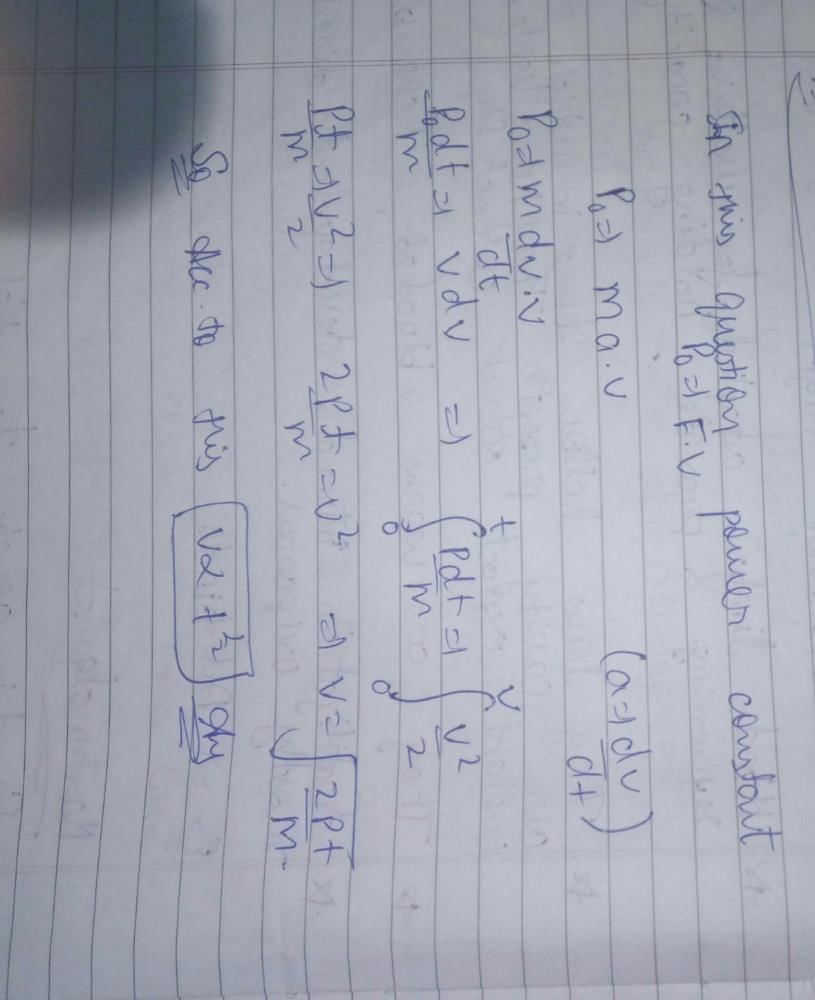 In this question power constant
P₀ ⇒ F.V
P₀ ⇒ m a.v (a ⇒ dv/dt)
P₀ ⇒ m dv/dt . v
P₀dt/m ⇒ v dv ⇒ ∫₀ᵗ Pdt/m ⇒ ∫₀ᵛ v²/2
Pt/m ⇒ v²/2 ⇒ 2Pt/m = v² ⇒ v = √2Pt/m
So Acc. to this v α t^½ Ans